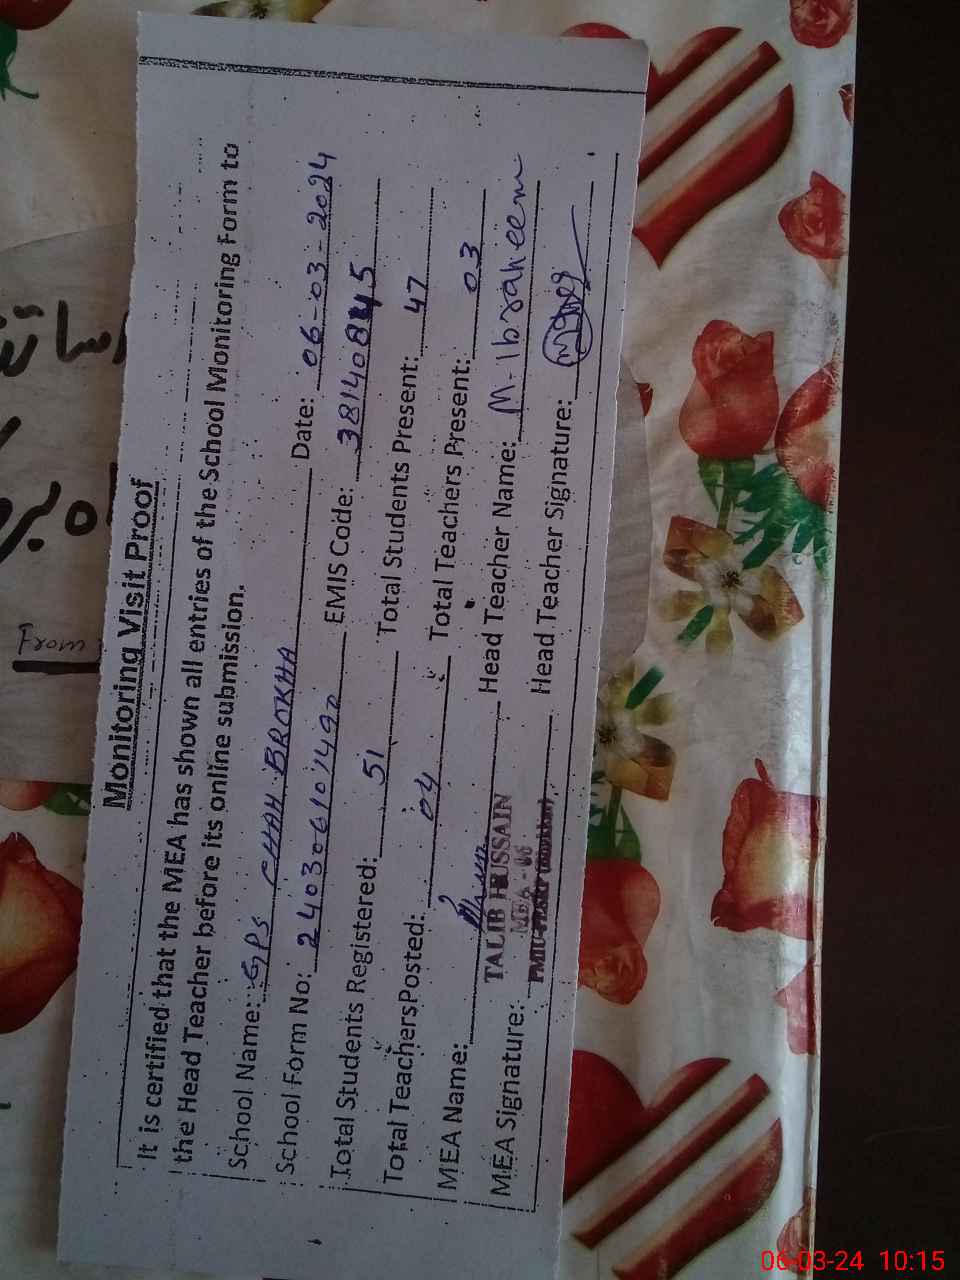 Monitoring Visit Proof
It is certified that the MEA has shown all entries of the School Monitoring Form to
the Head Teacher before its online submission.
School Name: GPS CHAH BROKHA Date: 06-03-2024
School Form No: EMIS Code: 38140845
Total Students Registered: 51 Total Students Present: 47
Total TeachersPosted: 04 Total Teachers Present: 03
MEA Name: Head Teacher Name: M-Ibraheem
TALIB HUSSAIN
MEA-
MEA Signature: Head Teacher Signature:
From
06-03-24 10:15